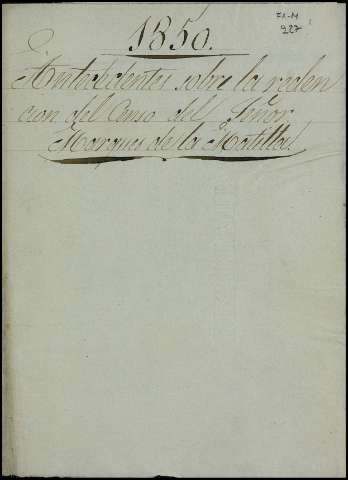 FA-M
987
1850.
Antecedentes sobre la reden
cion del Censo del Señor
Marques de la Matilla.